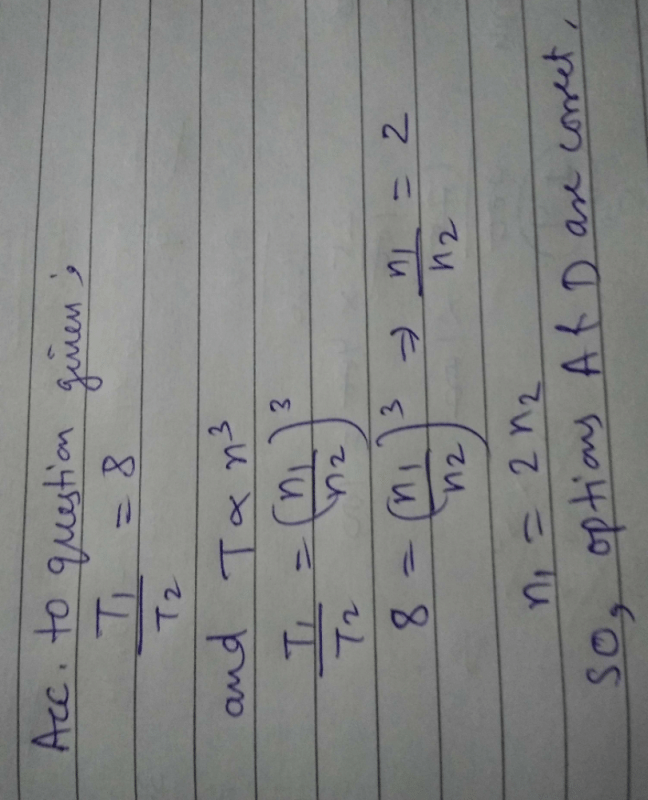 Acc. to question given;
T₁/T₂ = 8
and T ∝ n³
T₁/T₂ = (n₁/n₂)³
8 = (n₁/n₂)³ ⇒ n₁/n₂ = 2
n₁ = 2 n₂
SO, options A & D are correct.